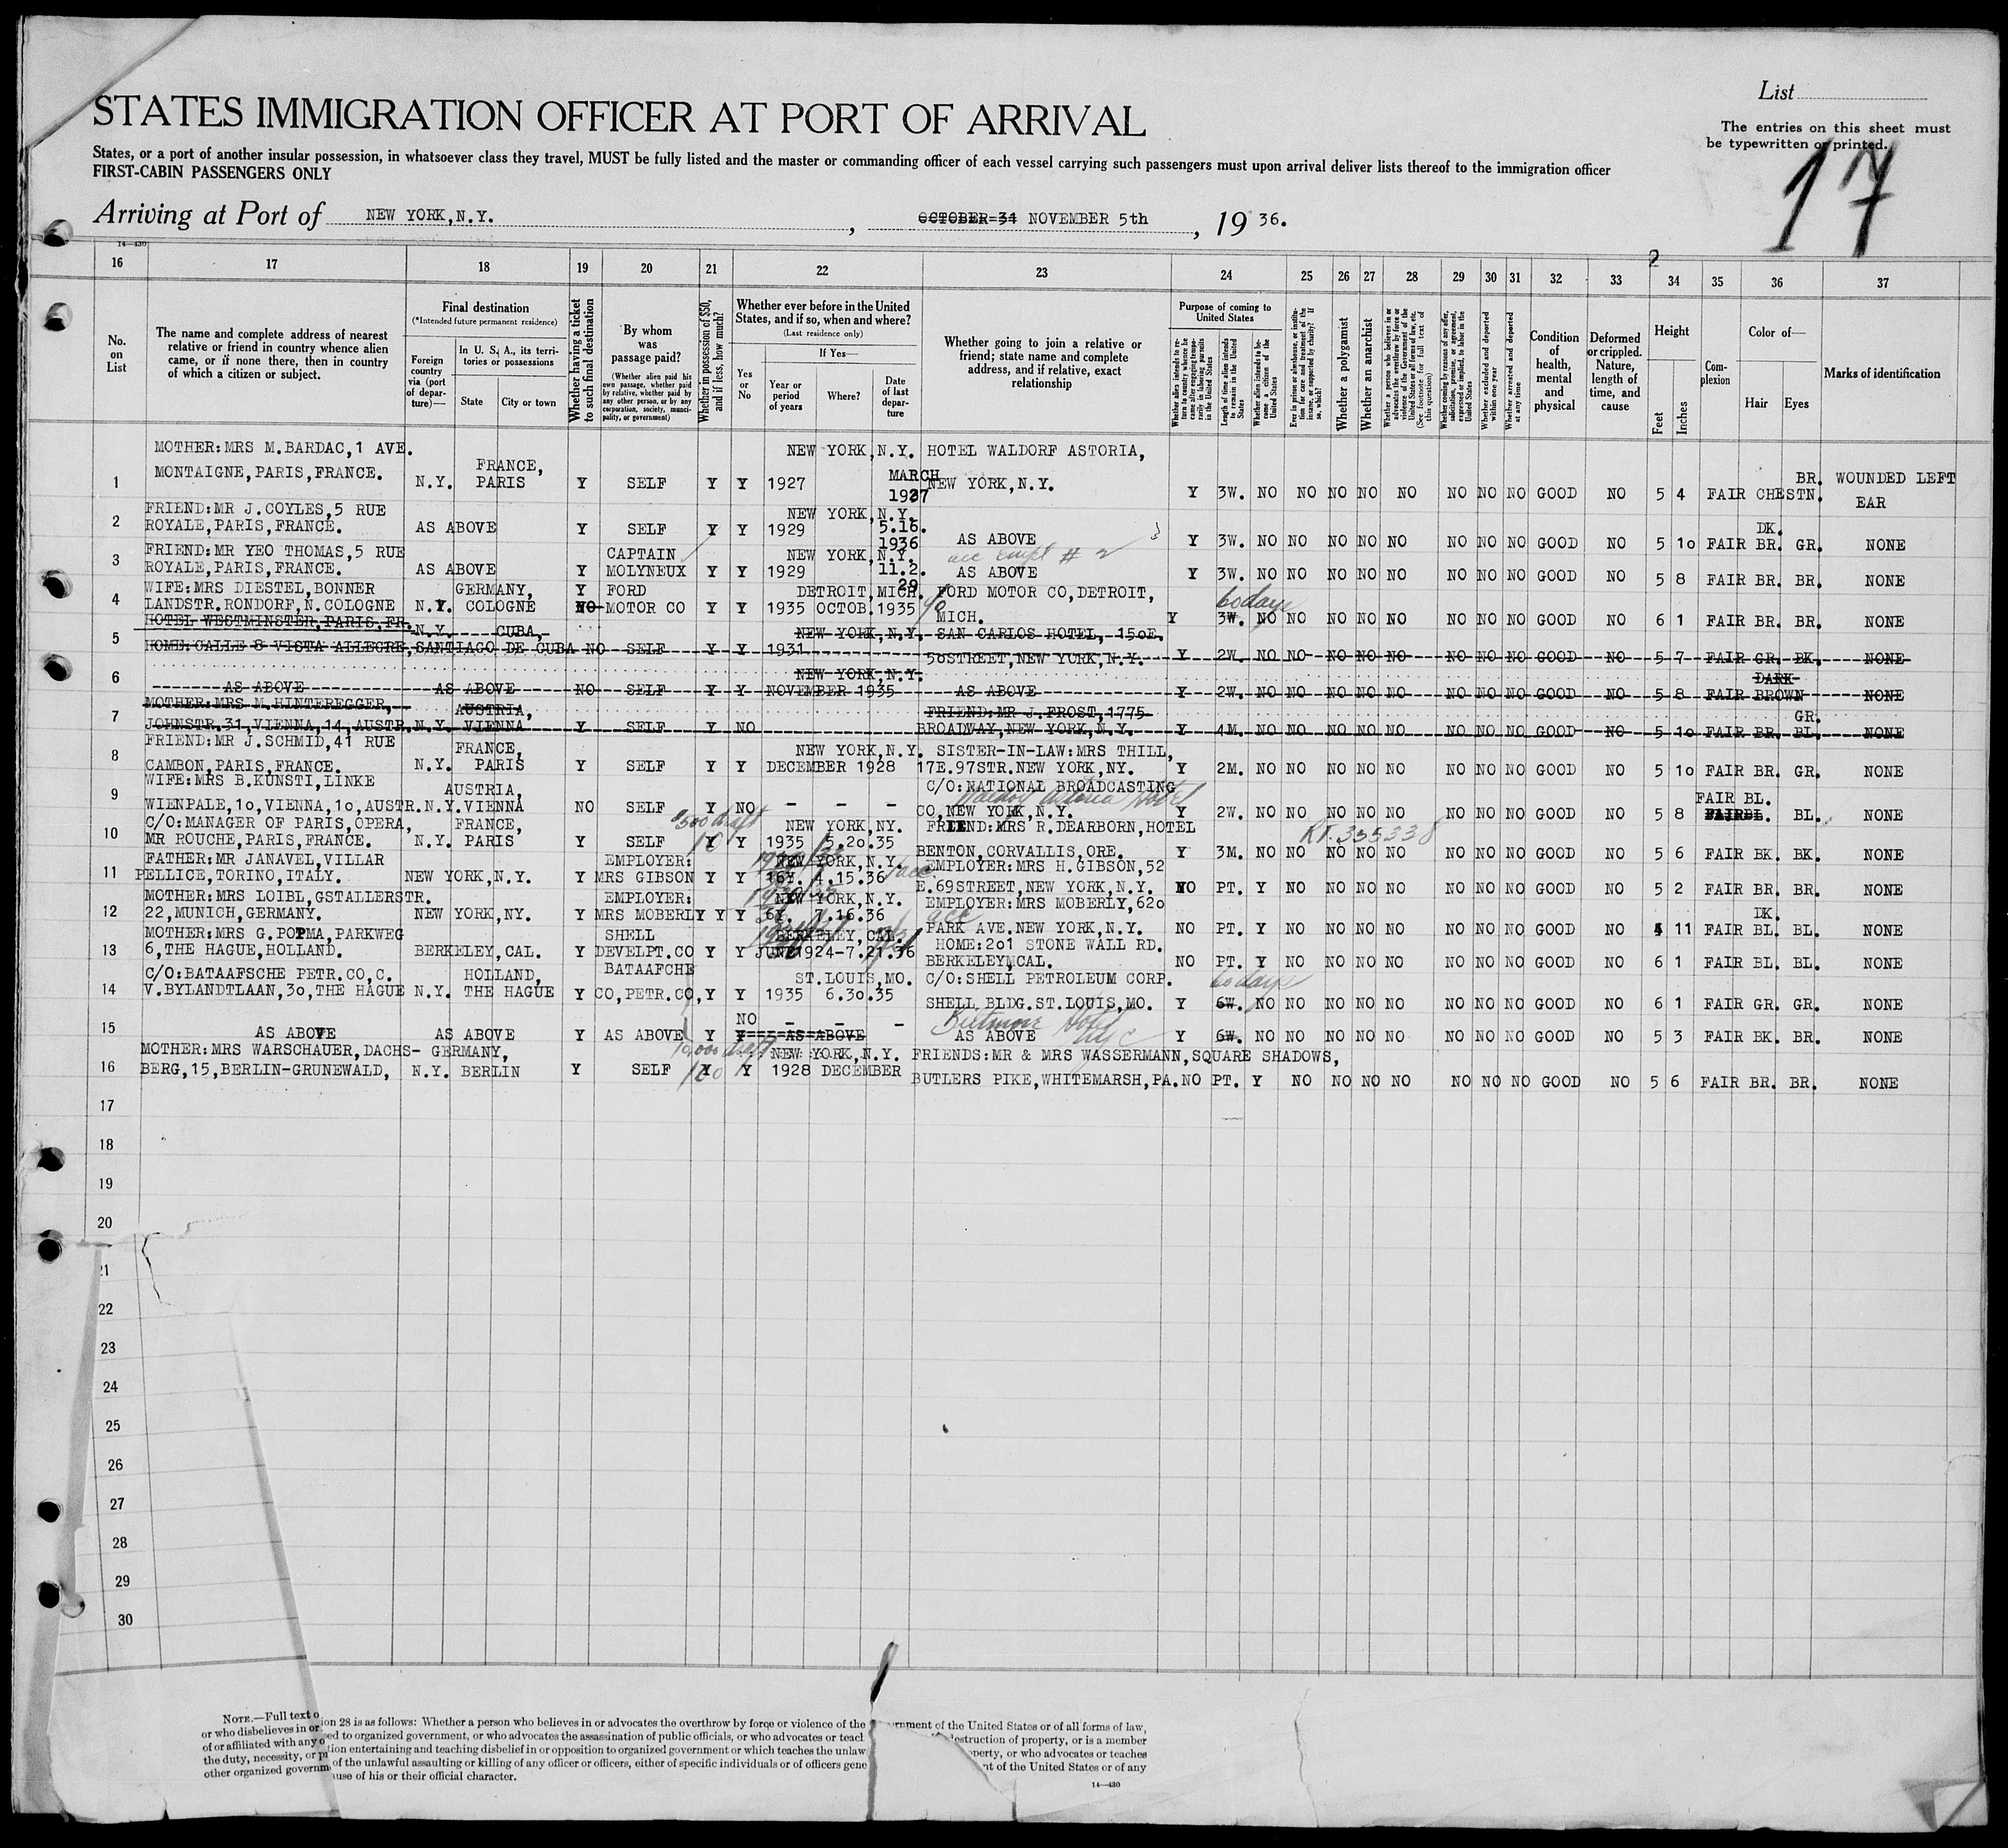 List
STATES IMMIGRATION OFFICER AT PORT OF ARRIVAL
The entries on this sheet must
be typewritten or printed.
States, or a port of another insular possession, in whatsoever class they travel, MUST be fully listed and the master or commanding officer of each vessel carrying such passengers must upon arrival deliver lists thereof to the immigration officer
FIRST-CABIN PASSENGERS ONLY
17
Arriving at Port of NEW YORK,N.Y. , OCTOBER=31 NOVEMBER 5th , 19 36.
14-430
2
16 17 18 19 20 21 22 23 24 25 26 27 28 29 30 31 32 33 34 35 36 37
No. on List
The name and complete address of nearest relative or friend in country whence alien came, or if none there, then in country of which a citizen or subject.
Final destination
(*Intended future permanent residence)
Foreign country via (port of departure)—
In U. S. A., its territories or possessions
State
City or town
Whether having a ticket to such final destination
By whom was passage paid?
(Whether alien paid his own passage, whether paid by relative, whether paid by any other person, or by any corporation, society, municipality, or government)
Whether in possession of $50, and if less, how much?
Whether ever before in the United States, and if so, when and where?
(Last residence only)
Yes or No
If Yes—
Year or period of years
Where?
Date of last departure
Whether going to join a relative or friend; state name and complete address, and if relative, exact relationship
Purpose of coming to United States
Whether alien intends to return to country whence he came after engaging temporarily in laboring pursuits in the United States
Length of time alien intends to remain in the United States
Whether alien intends to become a citizen of the United States
Ever in prison or almshouse, or institution for care and treatment of the insane, or supported by charity? If so, which?
Whether a polygamist
Whether an anarchist
Whether a person who believes in or advocates the overthrow by force or violence of the Government of the United States or all forms of law, etc. (See footnote for full text of this question)
Whether coming by reason of any offer, solicitation, promise, or agreement, expressed or implied, to labor in the United States
Whether excluded and deported within one year
Whether arrested and deported at any time
Condition of health, mental and physical
Deformed or crippled. Nature, length of time, and cause
Height
Feet
Inches
Complexion
Color of—
Hair
Eyes
Marks of identification
MOTHER:MRS M.BARDAC,1 AVE. NEW YORK,N.Y. HOTEL WALDORF ASTORIA,
1 MONTAIGNE,PARIS,FRANCE. N.Y. FRANCE, PARIS Y SELF Y Y 1927 MARCH 1927 NEW YORK,N.Y. Y 3W. NO NO NO NO NO NO NO NO GOOD NO 5 4 FAIR CHESTN. BR. WOUNDED LEFT EAR
FRIEND:MR J.COYLES,5 RUE NEW YORK,N.Y.
2 ROYALE,PARIS,FRANCE. AS ABOVE Y SELF Y Y 1929 5.16. 1936 AS ABOVE Y 3W. NO NO NO NO NO NO NO NO GOOD NO 5 10 FAIR DK. BR. GR. NONE
FRIEND:MR YEO THOMAS,5 RUE CAPTAIN NEW YORK,N.Y. acc empl # 2
3 ROYALE,PARIS,FRANCE. AS ABOVE Y MOLYNEUX Y Y 1929 11.2. 29 AS ABOVE Y 3W. NO NO NO NO NO NO NO NO GOOD NO 5 8 FAIR BR. BR. NONE
WIFE:MRS DIESTEL,BONNER GERMANY, Y FORD DETROIT,MICH. FORD MOTOR CO,DETROIT, 60 days
4 LANDSTR.RONDORF,N.COLOGNE N.Y. COLOGNE NO MOTOR CO Y Y 1935 OCTOB.1935 c/o MICH. Y 3W. NO NO NO NO NO NO NO NO GOOD NO 6 1 FAIR BR. BR. NONE
HOTEL WESTMINSTER,PARIS,FR. N.Y. CUBA, NEW YORK,N.Y. SAN CARLOS HOTEL, 150E.
5 HOME:CALLE 8 VISTA ALLEGRE,SANTIAGO DE CUBA NO SELF Y Y 1931 50STREET,NEW YORK,N.Y. Y 2W. NO NO NO NO NO NO NO NO GOOD NO 5 7 FAIR GR. BK. NONE
NEW YORK,N.Y.
6 AS ABOVE AS ABOVE NO SELF Y Y NOVEMBER 1935 AS ABOVE Y 2W. NO NO NO NO NO NO NO NO GOOD NO 5 8 FAIR DARK BROWN NONE
MOTHER:MRS M.HINTEREGGER, AUSTRIA, FRIEND:MR J.FROST,1775
7 JOHNSTR.31,VIENNA,14,AUSTR.N.Y. VIENNA Y SELF Y NO BROADWAY,NEW YORK,N.Y. Y 4M. NO NO NO NO NO NO NO NO GOOD NO 5 10 FAIR BR. GR. BL. NONE
FRIEND:MR J.SCHMID,41 RUE FRANCE, NEW YORK,N.Y. SISTER-IN-LAW:MRS THILL,
8 CAMBON,PARIS,FRANCE. N.Y. PARIS Y SELF Y Y DECEMBER 1928 17E.97STR.NEW YORK,NY. Y 2M. NO NO NO NO NO NO NO NO GOOD NO 5 10 FAIR BR. GR. NONE
WIFE:MRS B.KUNSTI,LINKE AUSTRIA, C/O:NATIONAL BROADCASTING Waldorf Astoria Hotel
9 WIENPALE,10,VIENNA,10,AUSTR.N.Y.VIENNA NO SELF Y NO - - - CO,NEW YORK,N.Y. Y 2W. NO NO NO NO NO NO NO NO GOOD NO 5 8 FAIR BL. BL. NONE
C/O:MANAGER OF PARIS,OPERA, FRANCE, $500 draft NEW YORK,NY. FRIEND:MRS R.DEARBORN,HOTEL RT.335338
10 MR ROUCHE,PARIS,FRANCE. N.Y. PARIS Y SELF Y Y 1935 5.20.35 BENTON,CORVALLIS,ORE. Y 3M. NO NO NO NO NO NO NO NO GOOD NO 5 6 FAIR BK. BK. NONE
FATHER:MR JANAVEL,VILLAR EMPLOYER: NEW YORK,N.Y. EMPLOYER:MRS H.GIBSON,52
11 PELLICE,TORINO,ITALY. NEW YORK,N.Y. Y MRS GIBSON Y Y 16Y. 4.15.36 E.69STREET,NEW YORK,N.Y. NO PT. Y NO NO NO NO NO NO NO GOOD NO 5 2 FAIR BR. BR. NONE
MOTHER:MRS LOIBL,GSTALLERSTR. EMPLOYER: NEW YORK,N.Y. EMPLOYER:MRS MOBERLY,620
12 22,MUNICH,GERMANY. NEW YORK,NY. Y MRS MOBERLY Y Y 6Y. 7.16.36 PARK AVE.NEW YORK,N.Y. NO PT. Y NO NO NO NO NO NO NO GOOD NO 4 11 FAIR DK. BL. BL. NONE
MOTHER:MRS G.POPMA,PARKWEG SHELL BERKELEY,CAL. HOME:201 STONE WALL RD.
13 6,THE HAGUE,HOLLAND. BERKELEY,CAL. Y DEVELPT.CO Y Y JUNE1924-7.21.36 BERKELEYMCAL. NO PT. Y NO NO NO NO NO NO NO GOOD NO 6 1 FAIR BL. BL. NONE
C/O:BATAAFSCHE PETR.CO,C. HOLLAND, BATAAFCHE ST.LOUIS,MO. C/O:SHELL PETROLEUM CORP. 60 days
14 V.BYLANDTLAAN,30,THE HAGUE N.Y. THE HAGUE Y CO,PETR.CO, Y Y 1935 6.30.35 SHELL BLDG.ST.LOUIS,MO. Y 6W. NO NO NO NO NO NO NO NO GOOD NO 6 1 FAIR GR. GR. NONE
NO - - - Biltmore Hotel NYC
15 AS ABOVE AS ABOVE Y AS ABOVE Y Y AS ABOVE AS ABOVE Y 6W. NO NO NO NO NO NO NO NO GOOD NO 5 3 FAIR BK. BR. NONE
MOTHER:MRS WARSCHAUER,DACHS- GERMANY, 10,000 draft NEW YORK,N.Y. FRIENDS:MR & MRS WASSERMANN,SQUARE SHADOWS,
16 BERG,15,BERLIN-GRUNEWALD, N.Y. BERLIN Y SELF 100 Y Y 1928 DECEMBER BUTLERS PIKE,WHITEMARSH,PA. NO PT. Y NO NO NO NO NO NO NO GOOD NO 5 6 FAIR BR. BR. NONE
17
18
19
20
21
22
23
24
25
26
27
28
29
30
NOTE.—Full text o ion 28 is as follows: Whether a person who believes in or advocates the overthrow by force or violence of the ernment of the United States or of all forms of law,
or who disbelieves in or ed to organized government, or who advocates the assassination of public officials, or who advocates or teach estruction of property, or is a member
of or affiliated with any o tion entertaining and teaching disbelief in or opposition to organized government or which teaches the unlaw operty, or who advocates or teaches
the duty, necessity, or pr of the unlawful assaulting or killing of any officer or officers, either of specific individuals or of officers gene nt of the United States or of any
other organized governm use of his or their official character.
14-430